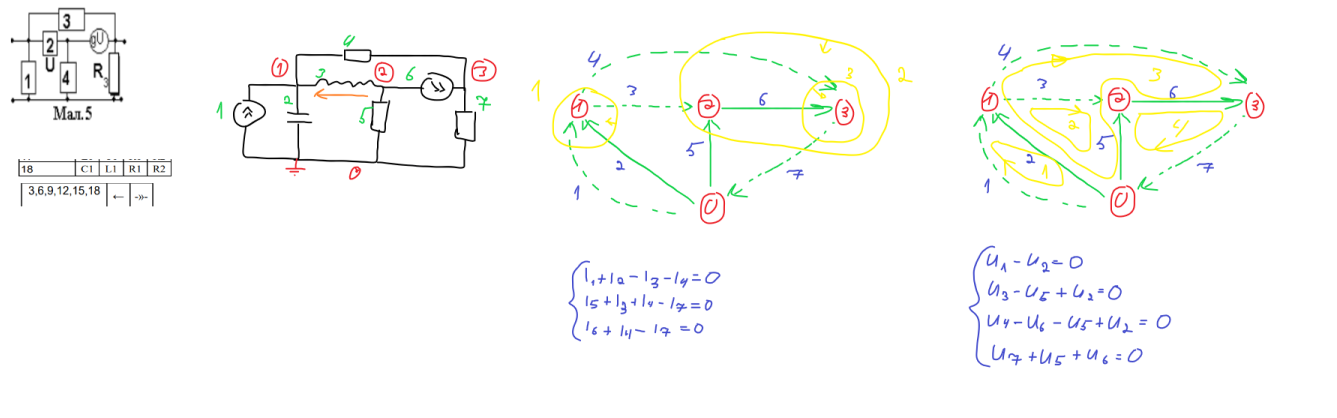 3
2
gU
U
1
4
R3
Мал.5
18 C1 L1 R1 R2
3,6,9,12,15,18 ← -»-
4
① 3 ② 6 ③
1 2 5 7
0
4
1 3 3 2
① ② 6 ③
5
2 7
1
0
4
3 3
① ② 6 ③
2 5 4
2 1 7
1
0
I1+I2-I3-I4=0
I5+I3+I4-I7=0
I6+I4-I7=0
U1-U2=0
U3-U5+U2=0
U4-U6-U5+U2=0
U7+U5+U6=0